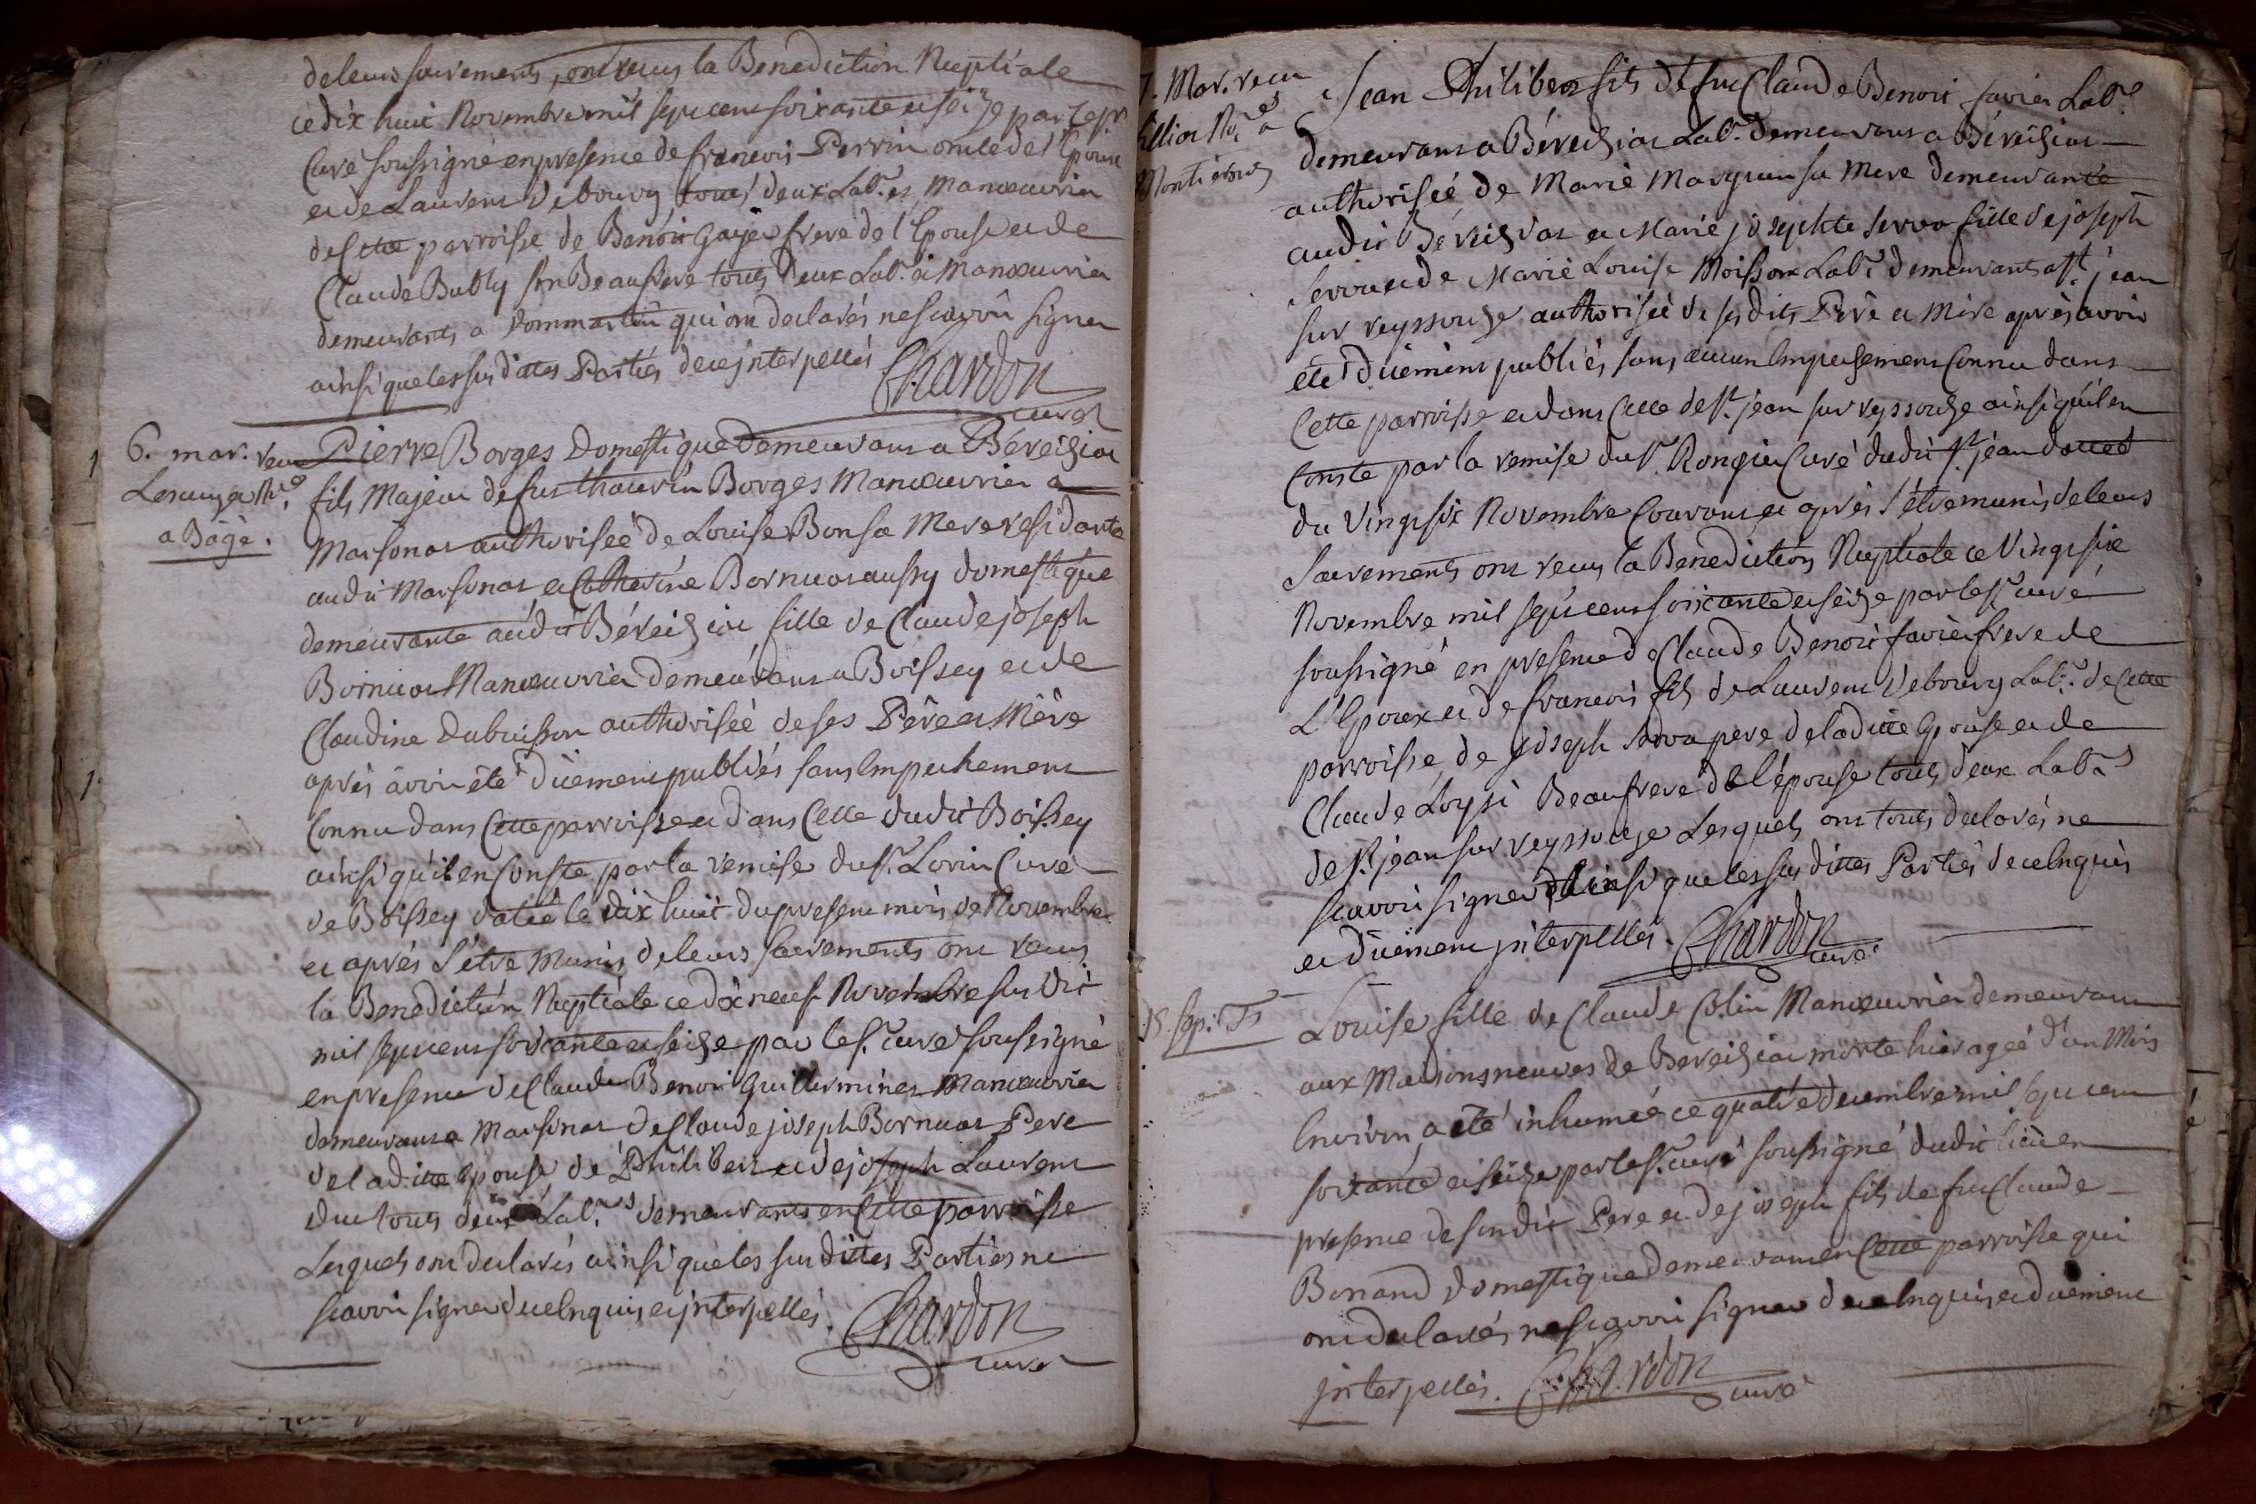 de leurs sacrements, ont reçus la Benediction Nuptiale
ce dix huit Novembre mil sept cent soixante et seize par le sr
Curé soussigné en presence de francois Perrin oncle de l'Epoux
et de Laurent Debourg tous deux Labr. et Manœuvrier
de cette parroisse de Benoit Gayer frere de l'Epouse et de
Claude Bubly son Beaufrere tous deux Labr. et Manœuvrier
demeurants a Dommartin qui ont declarés ne scavoir signer
ainsi que les sus dites Parties de ce jnterpellés Chardon
curé
6. mar. reçu
Lesauge Nre
a Bâgé.
Pierre Borges Domestique demeurant a Béreiziat
fils Majeur de fut thaurin Borges Manœuvrier a
Marsonas authorisée de Louise Bon sa Mere residante
audit Marsonas et Catherine Bornuat aussy domestique
demeurante audit Béreiziat fille de Claude joseph
Bornuat Manœuvrier demeurant a Boissey et de
Claudine Dubuisson authorisée de ses Père et Mère
après avoir été düement publiés sans Empechement
Connu dans Cette parroisse et dans Celle dudit Boissey
ainsi qu'il en Conste par la remise du sr. Lorin Curé
de Boissey datée le dix huit du present mois de Novembre
et après s'étre Munis de leurs sacrements ont reçus
la Benediction Nuptiale ce dix neuf Novembre sus dit
mil sept cent soixante et seize par le sr. curé soussigné
en presence de Claude Benoit Guillerminet Manœuvrier
demeurant a Marsonas de Claude joseph Bornuat Pere
de laditte Epouse, de Philibert et de joseph Laurent
Duc tous deux Labr.s demeurants en Cette parroisse
Lesquels ont declarés ainsi que les sus dittes Parties ne
scavoir signer de ce Enquis et jnterpellés. Chardon
curé
7. Mar. reçu
Nre a
Montierois
Jean Philibert fils de fut Claude Benoit favier Labr.
demeurant a Béreiziat Labr. demeurant a Béreiziat
authorisée de Marie Marguin sa Mere demeurante
audit Béreiziat et Marie josephte servo fille de joseph
servo et de Marie Louise Moisson Labr. demeurants a st. jean
sur reyssouze authorisée de ses dits Père et Mère après avoir
été düement publiés sans aucun Empechement Connu dans
Cette parroisse et dans Celle de st. jean sur reyssouze ainsi qu'il en
Conste par la remise du sr. Rongier Curé dudit st. jean dattée
du Vingt six Novembre Courant et après s'étre munis de leurs
sacrements ont reçus la Benediction Nuptiale ce Vingt six
Novembre mil sept cent soixante et seize par le sr. curé
soussigné en presence de Claude Benoit favier frere de
L'Epoux et de francois fils de Laurent Debourg Labr. de Cette
parroisse, de joseph servo pere de laditte Epouse et de
Claude Loysi Beaufrere de l'épouse tous deux Labr.s
de st. jean sur reyssouze Lesquels ont tous declarés ne
scavoir signer ainsi que les sus dittes Parties de ce Enquis
et düement jnterpellés. Chardon
curé
15. sep: Ts
Louise fille de Claude Colin Manœuvrier demeurant
aux Maisons neuves de Bereiziat morte hier agée d'un Mois
Environ, a été inhumée ce quatre decembre mil sept cent
soixante et seize par le sr. curé soussigné dudit lieu en
presence de sondit Pere et de joseph fils de fut Claude
Bonand Domestique demeurant en Cette parroisse qui
ont declarés ne scavoir signer de ce Enquis et düement
jnterpellés. Chardon
curé